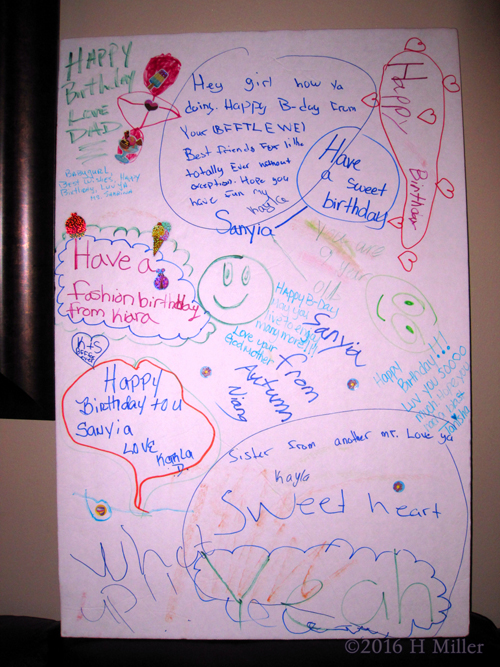 HAPPY
Birthday
LOVE
DAD
Hey girl how ya
doing. Happy B-day From
Your (BFFTLEWE)
Best friends For life
totally Ever without
exception. Hope you
have fun my
Kayla
Sanyia
Have
a sweet
birthday
Happy
Birthday
Best Wishes, Happy
Birthday, Luv ya
Have a
fashion birthday
from Kiara
You are
9 years
old
Happy B-day
May you
live to enjoy
many more!!!
Love your
Godmother
Sanyia
from
Autumn
Niang
Happy
Birthday!!!
Luv you soooo
K+S
BFFTLEWE
Happy
Birthday to u
Sanyia
LOVE
Kayla
D.
Sister from another mr. Love ya
Kayla
Sweet heart
What
up
Yeah
©2016 H Miller